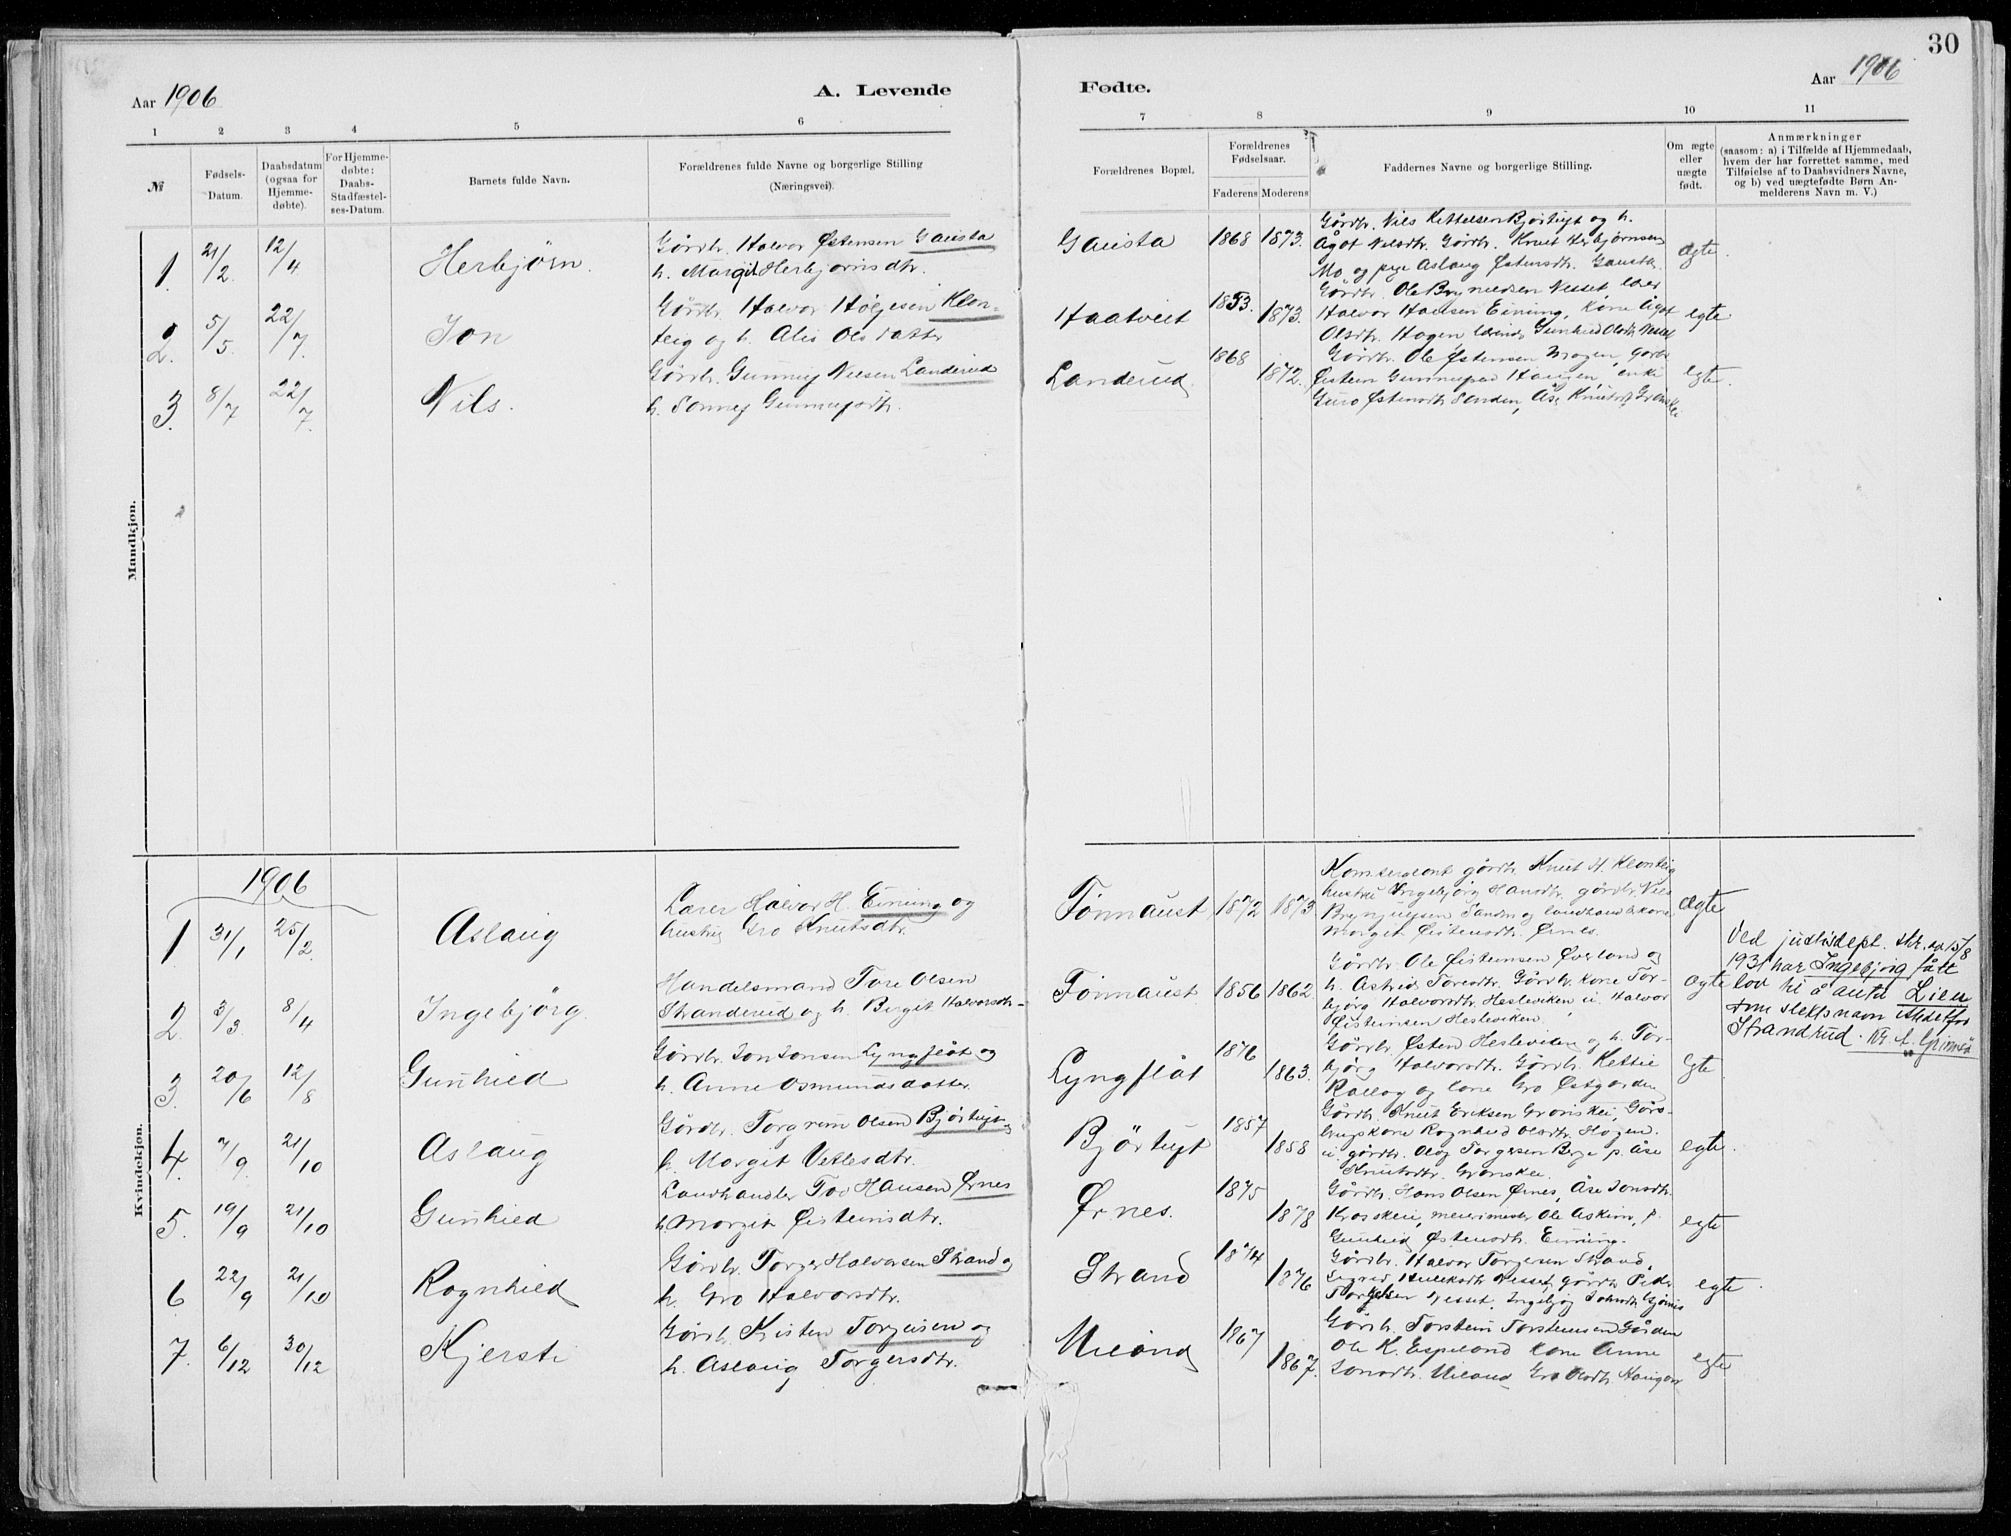 30
Aar 1906
A. Levende
Fødte.
Aar 1906
1 2 3 4 5 6
7 8 9 10 11
№
Fødsels-
Datum.
Daabsdatum
(ogsaa for
Hjemme-
døbte).
For Hjemme-
døbte:
Daabs-
Stadfæstel-
ses-Datum.
Barnets fulde Navn.
Forældrenes fulde Navne og borgerlige Stilling
(Næringsvei).
Forældrenes Bopæl.
Forældrenes
Fødselsaar.
Faderens Moderens
Faddernes Navne og borgerlige Stilling.
Om ægte
eller
uægte
født.
Anmærkninger
(saasom: a) i Tilfælde af Hjemmedaab,
hvem der har forrettet samme, med
Tilføielse af to Daabsvidners Navne,
og b) ved uægtefødte Børn An-
melderens Navn m. V.)
Mandkjøn.
1. 21/2. 12/4 Herbjørn.
Gårdbr. Halvor Østensen Gausta
h. Margit Herbjørnsdtr.
Gausta 1868 1873.
Gårdbr. Nils Kittelsen Bjørtuft og h.
Ågot Nilsdtr. Gårdbr. Knut Herbjørnsen
Mo og pige Aslaug Østensdtr. Gausta.
ægte.
2. 5/5. 22/7. Jon
Gårdbr. Halvor Høljesen Klon-
teig og h. Alis Olsdatter
Haatveit 1853. 1873.
Gårdbr. Ole Brynuldsen Nesset lær
Halvor Hansen Einung, kone Ågot
Olsdtr. Hagen Gunhild Olsdtr. Nesset
egte
3. 8/7 22/7. Nils.
Gårdbr. Gunnuf Nilsen Landerud
h. Sonnef Gunnufsdtr.
Landerud 1868 1872.
Gårdbr. Ole Østensen Mogen, gårdbr.
Østein Gunnufsen Haugen, enke
Guro Østensdtr. Sanden, Åse Knutsdtr. Grønskei
egte.
Kvindekjøn.
1906
1 31/1 25/2. Aslaug
Lærer Halvor H. Einung og
hustru Gro Knutsdtr.
Tinnaust 1872 1873
gårdbr. Knut H. Klonteig
hustru Ingebjørg Hansdtr. gårdbr. Nils
Brynjulfsen Sanden og landhandlerkone
Margit Øistensdtr. Ørnes.
ægte
2 3/3. 8/4 Ingebjørg.
Handelsmand Tore Olsen
Stranderud og h. Birgit Halvorsdtr.
Tinnaust 1856 1862
Gårdbr. Ole Øisteinsen Øverland og
h. Astrid Toresdtr. Gårdbr. kone Tor-
bjørg Halvorsdtr. Hesleviken u. Halvor
Øisteinsen Hesleviken.
ægte
Ved justisdept. skr. av 15/8
1931 har Ingebjørg fått
lov til å anta Lien
som slektsnavn istedetfor
Strandrud.
3. 20/6 12/8 Gunhild
Gårdbr. Jon Jonsen Lyngflåt og
h. Anne Osmundsdatter.
Lyngflåt 1876 1863.
Gårdbr. Østen Hesleviken og h. Tor-
bjørg Halvorsdtr. Gårdbr. Kittil
Rallog og kone Gro Østgarden
Egte
4. 7/9. 21/10 Aslaug
Gårdbr. Torgrim Olsen Bjørtuft og
h. Margit Vetlesdtr.
Bjørtuft 1857 1858
Gårdbr. Knut Eriksen Grønskei, Gård-
brugskone Ragnhild Olsdtr. Hagen.
u. gårdbr. Olav Torgersen Berge p. Åse
Knutsdtr. Grønskei.
egte.
5. 19/9 21/10 Gunhild
Landhandler Tov Hansen Ørnes
h. Margit Øisteinsdtr.
Ørnes. 1875 1878
Gårdbr. Hans Olsen Ørnes, Åse Jonsdtr.
Krosskei, meierimester Ole Askim, p.
Gunhild Østensdtr. Einung.
egte
6 22/9 21/10 Ragnhild
Gårdbr. Torger Halvorsen Strand og
h. Gro Halvorsdtr.
Strand 1874 1876
Gårdbr. Halvor Torgersen Strand,
Sigrid Nesset, gårdbr. Peder
Torgersen Nesset, Ingebjørg
egte.
7. 6/12 30/12 Kjersti
Gårdb. Kristen Torgeisen og
h. Aslaug Torgersdtr.
Miland 1867 1867.
Gårdb. Torstein Torsteinsen Gården
Ole K. Espeland kone Anne
Jonsdtr. Miland Gro Olsdtr. Haugen
egte